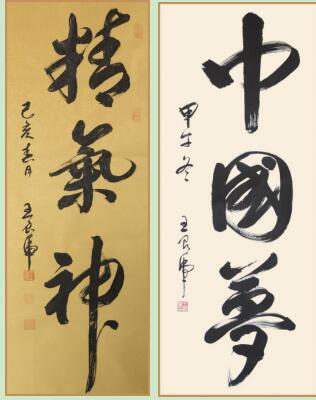 精氣神
己亥春月 王良虎
中國夢
甲午冬 王良虎